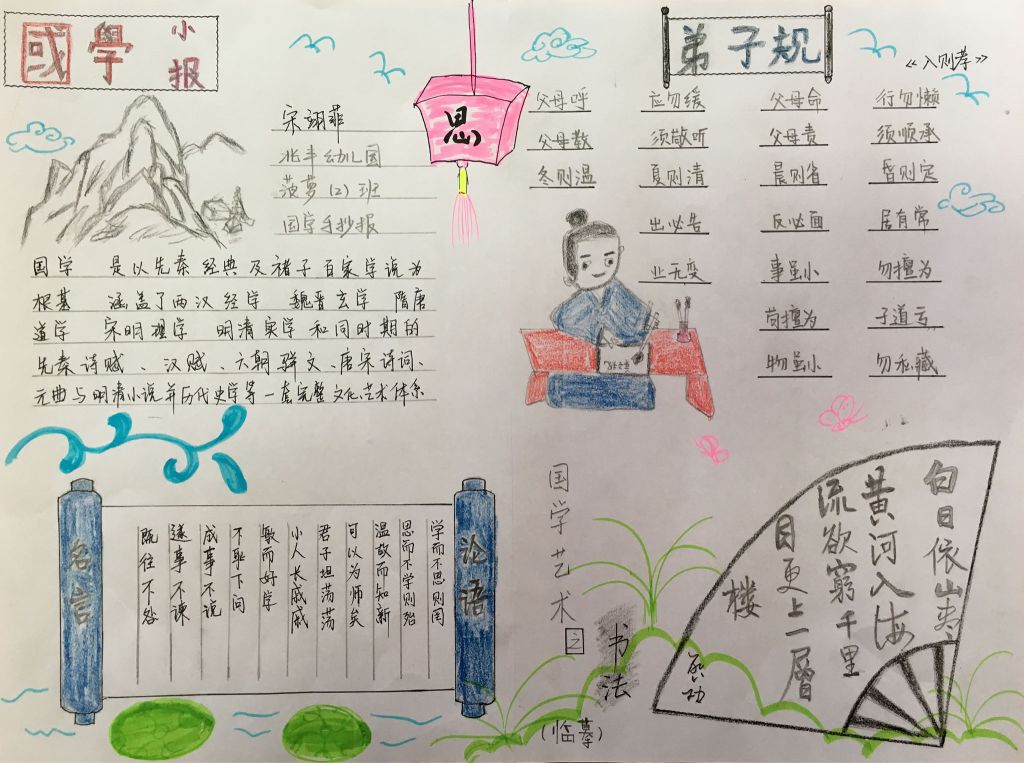 國學
小报
宋翊菲
北丰幼儿园
菠萝(2)班
国学手抄报
思
国学 是以先秦经典及褚子百家学说为
根基 涵盖了两汉经学 魏晋玄学 隋唐
道学 宋明理学 明清实学和同时期的
先秦诗赋、汉赋、六朝骈文、唐宋诗词、
元曲与明清小说并历代史学等一套完整文化、艺术体系
弟子规
《入则孝》
父母呼 应勿缓 父母命 行勿懒
父母教 须敬听 父母责 须顺承
冬则温 夏则清 晨则省 昏则定
出必告 反必面 居有常
业无变 事虽小 勿擅为
苟擅为 子道亏
物虽小 勿私藏
论语
学而不思则罔
思而不学则殆
温故而知新
可以为师矣
君子坦荡荡
小人长戚戚
敏而好学
不耻下问
成事不说
遂事不谏
既往不咎
名言
国学艺术之
书法
(临摹)
白日依山
黄河入海
流欲穷千里
目更上一層
楼
启功